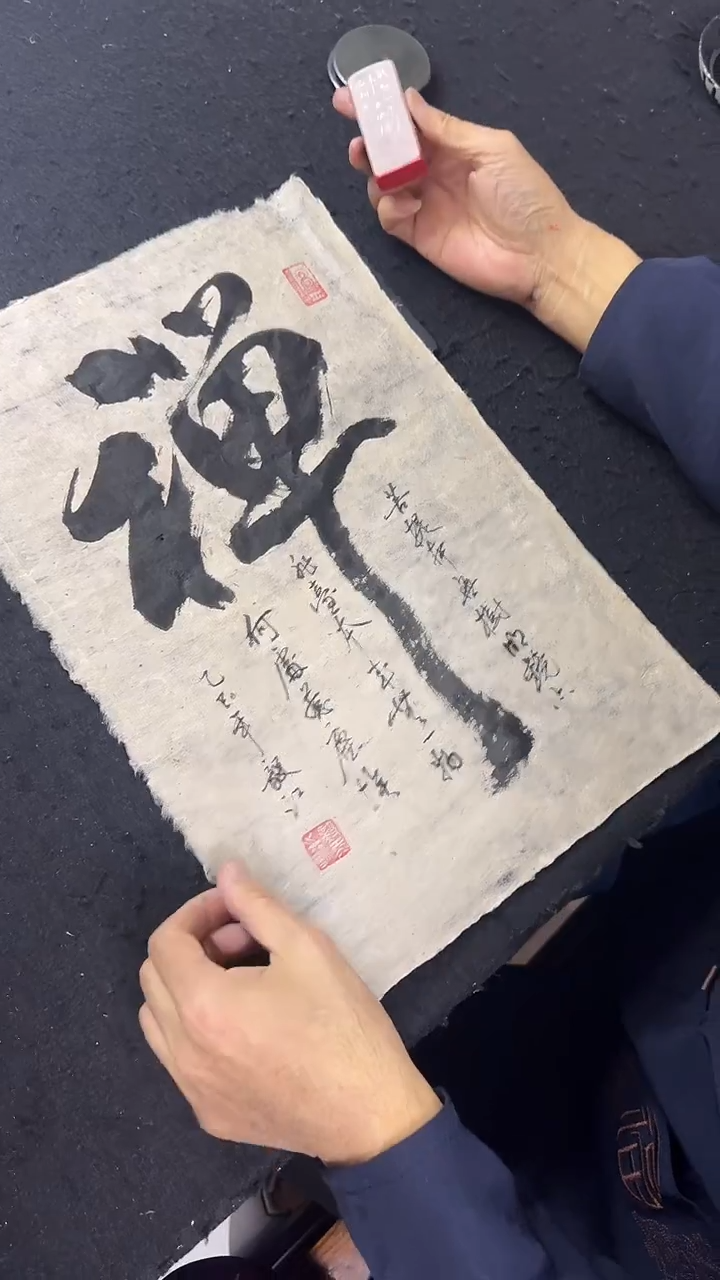 禅
菩提本無樹明鏡亦
非臺本来無一物
何處惹塵埃
乙巳年